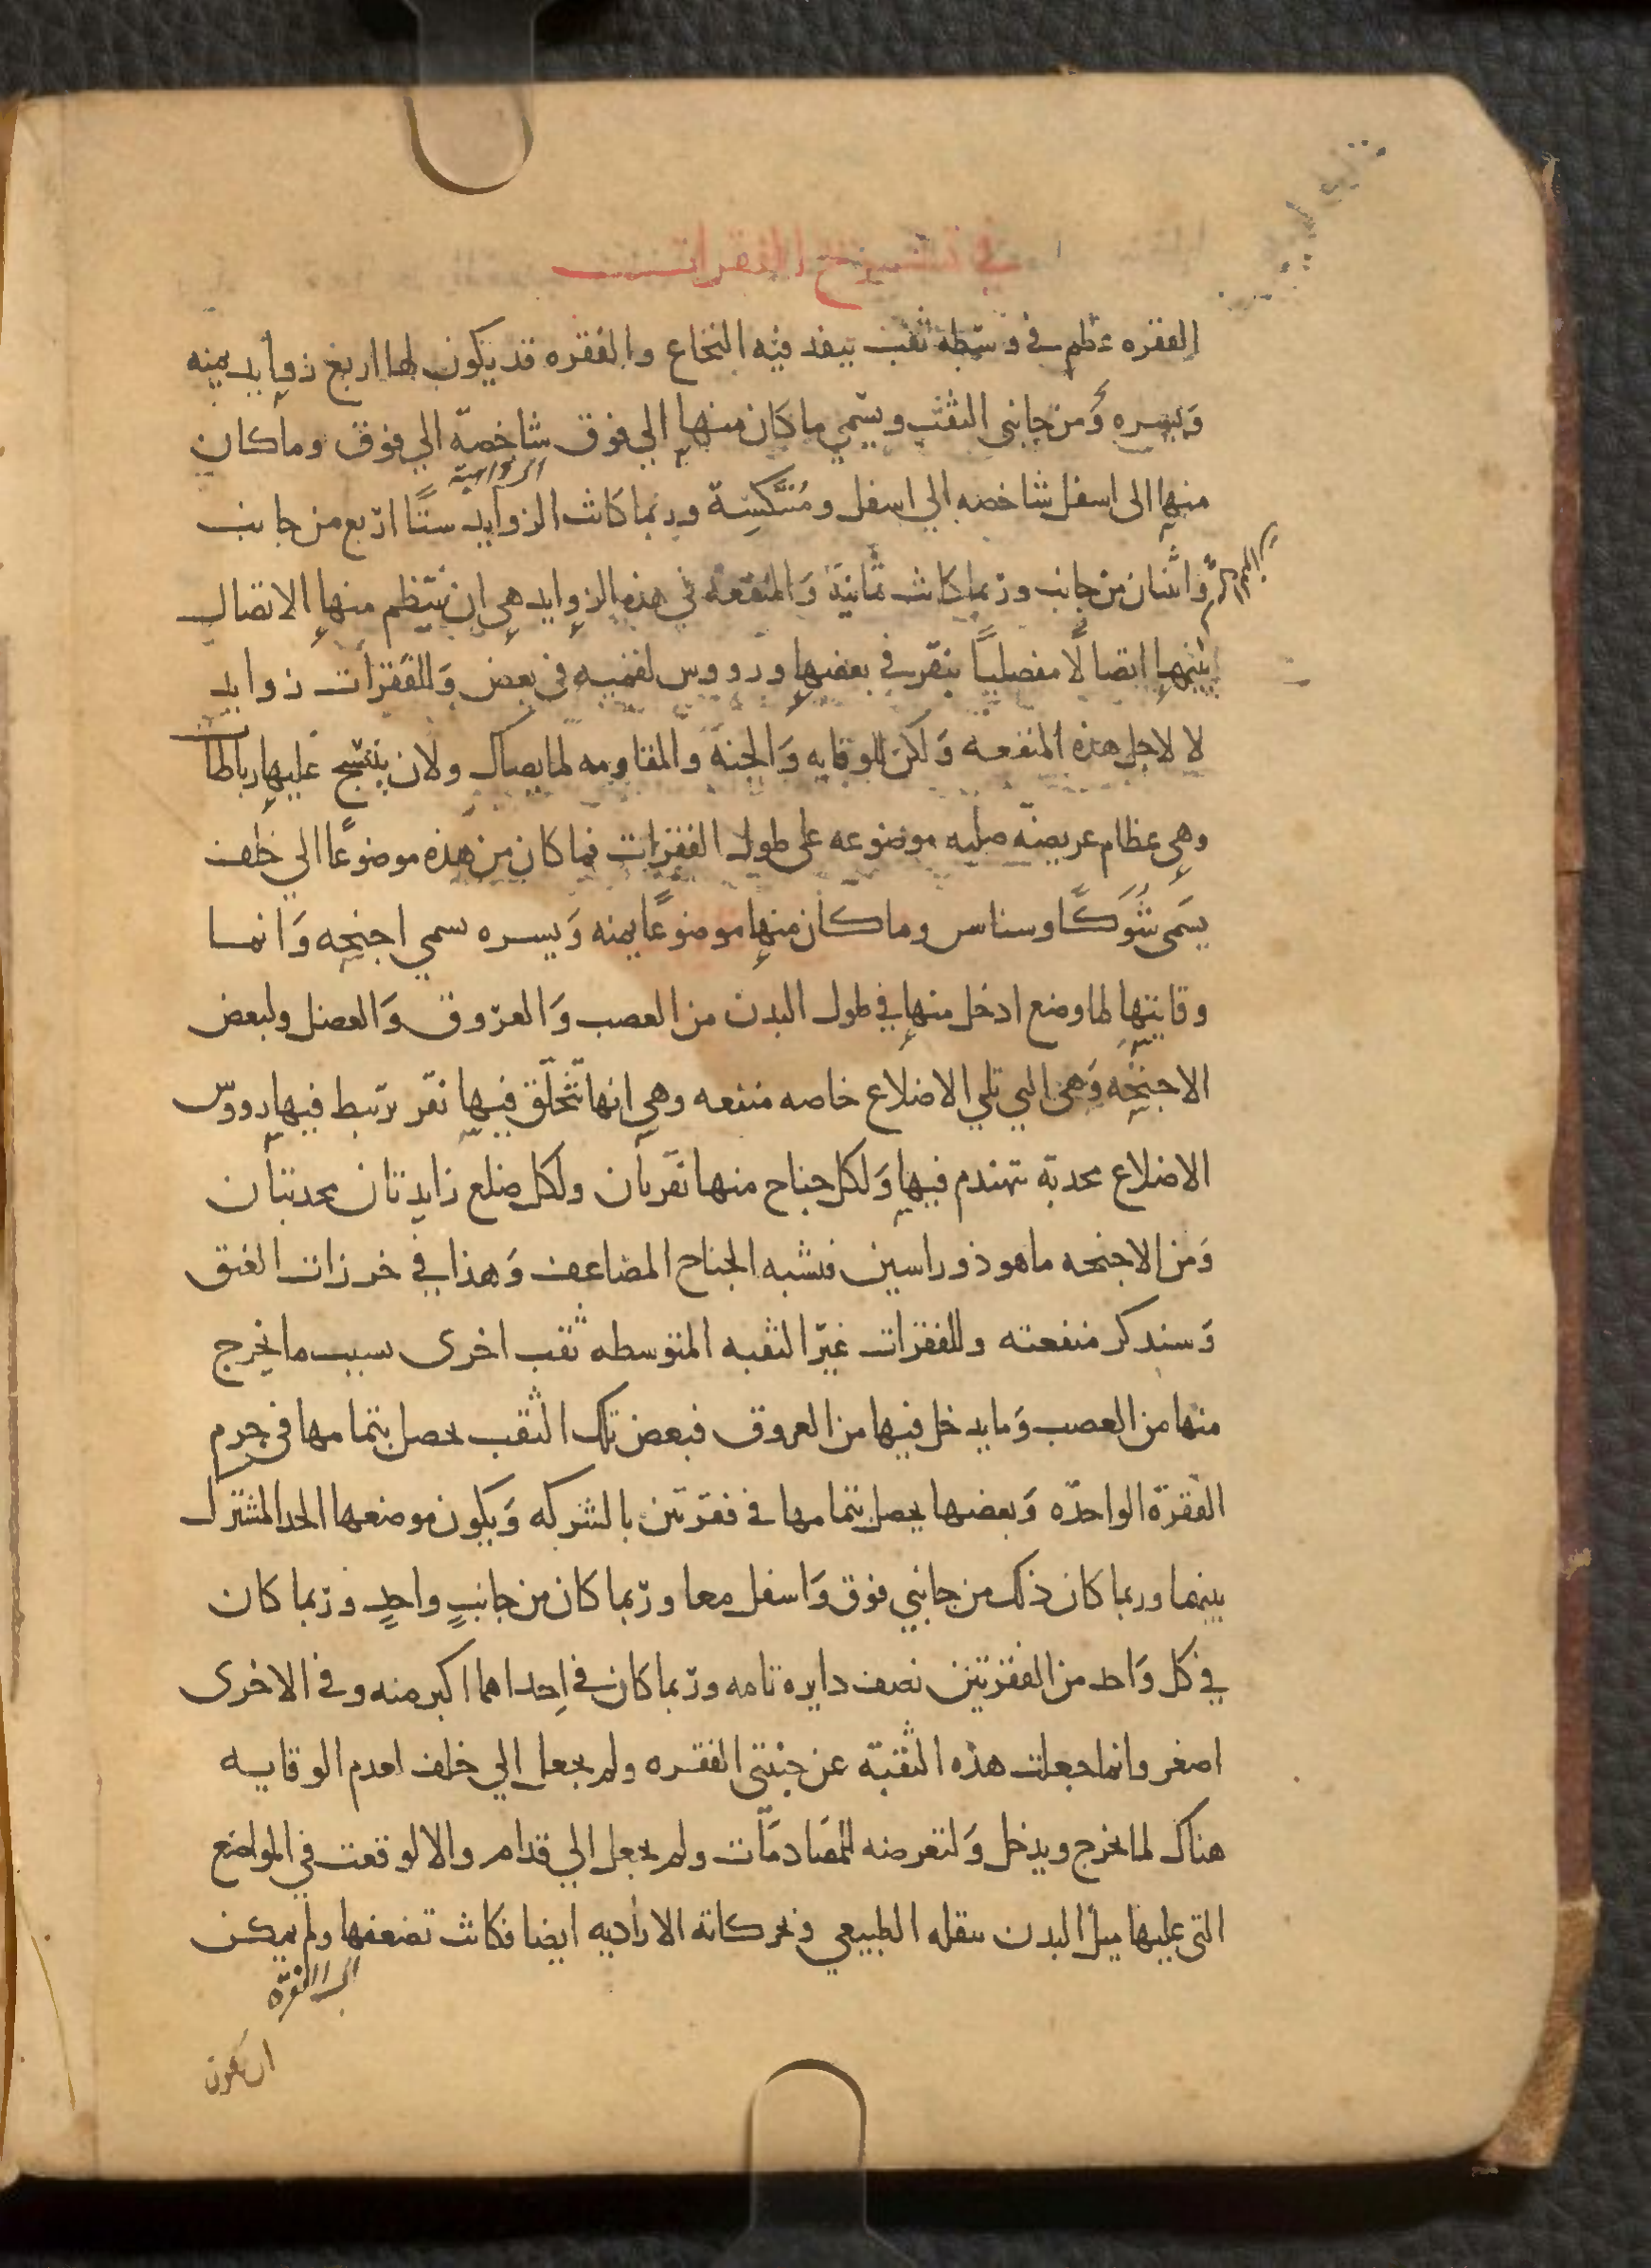 في تشريح الفقرات
الفقره عظم في وسطه ثقب ينفد فيه النخاع والفقره قد يكون لها اربع زوايد يمنه
وَيسره وَمن جانبي الثقب ويسمي ما كان منها الي فوق شاخصة الي فوق وما كان
منها الى اسفل شاخصه الي اسفل ومُنتكسِة وربما كانت الزوايد ستًا اربع من جانب
وَاثنان من جانب وربما كانت ثمانية وَالمنفعه في هذه الزوايد هي ان ينتظم منها الاتصال
بينها اتصالًا مفصلياً بنقر في بعضها ورووس لقميه في بعض وَللفقرات زوايد
لا لاجل هذه المنفعه وَلكن للوقايه وَالجنة والمقاومه لما يصاك ولان ينتسج عليها رباطات
وهي عظام عريضة صلبه موضوعه على طول الفقرات فما كان من هذه موضوعًا الي خلف
يسَمى شَوكًا وسناسن وما كان منها موضوعًا يمنه وَيسره سمي اجنحه وَانما
وقايتها لما وضع ادخل منها في طول البدن من العصب وَالعروق وَالعضل ولبعض
الاجنحِه وَهي التي تلي الاضلاع خاصه منفعه وهي انها تتخلّق فيها نقر ترتبط فيها رووس
الاضلاع محدبة تهندم فيها وَلكل جناح منها نقرتان ولكل ضلع زايدتان محدبتان
وَمن الاجنحه ما هو ذو راسين فتشبه الجناح المضاعف وَهذا في خرزات العنق
وَسندكر منفعته وللفقرات غير الثقبه المتوسطه ثقب اخرى بسبب ما يخرج
منها من العصب وَما يدخل فيها من العروق فبعض تلك الثقب يحصل بتمامها في جرم
الفقرة الواحدة وَبعضها يحصل بتمامها في فقرتين بالشركه وَيكون موضعها الحد المشترك
بينهما وربما كان ذلك من جانبي فوق وَاسفل معا وربما كان من جانبٍ واحدٍ وربما كان
في كل وَاحد من الفقرتين نصف دايره تامه وربما كان في اِحداهما اكبر منه وفي الاخرى
اصغر وانما جعلت هذه الثقبة عن جنبتي الفقره ولم يجعل الي خلف لعدم الوقايه
هناك لما يخرج ويدخل وَلتعرضه للمصَادمَات ولم يجعل الي قدام والا لوقعت في المواضع
التي عليها ميل البدن بثقله الطبيعي وبحركاته الاراديه ايضا فكانت تضعفها ولم يمكن
ان تكون